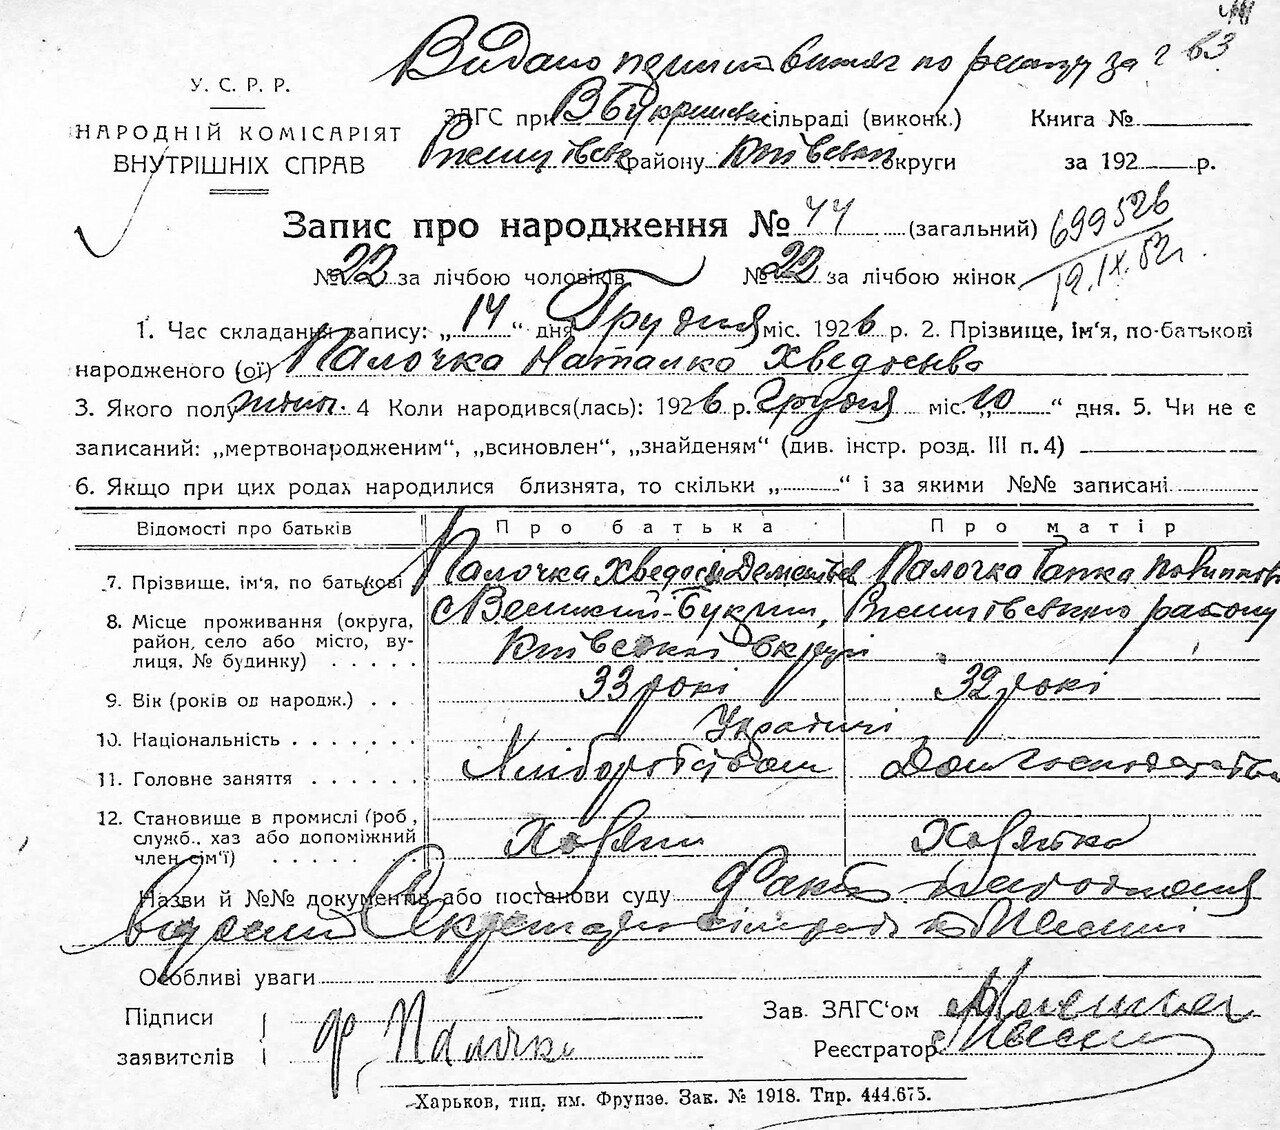 Видано повторний витяг по реєстру за № 63
У. С. Р. Р.
НАРОДНІЙ КОМІСАРІЯТ
ВНУТРІШНІХ СПРАВ
ЗАГС при В Букринськ. сільраді (виконк.) Книга №
району Київської округи за 192 р.
Запис про народження № 44 (загальний)
699526
12.IX.52г.
№ 22 за лічбою чоловіків № 22 за лічбою жінок
1. Час складання запису: „14“ дня Грудня міс. 1926 р. 2. Прізвище, ім'я, по-батькові
народженого (ої) Палочка Наталка Хведосьівна
3. Якого полу жіноч. 4 Коли народився(лась): 1926 р. Грудня міс. „10“ дня. 5. Чи не є
записаний: „мертвонародженим“, „всиновлен“, „знайденям“ (див. інстр. розд. III п. 4)
6. Якщо при цих родах народилися близнята, то скільки „ “ і за якими №№ записані
Відомості про батьків Про батька Про матір
7. Прізвище, ім'я, по батькові Палочка Хведосій Палочка
8. Місце проживання (округа, район, село або місто, вулиця, № будинку) с Великий-Букрин, району
Київської округи
9. Вік (років од народж.) 33 рокі 32 рокі
10. Національність Українці
11. Головне заняття Хліборобство Дом господарство
12. Становище в промислі (роб., служб., хаз або допоміжний член сім'ї) Хазяїн Хазяйка
Назви й №№ документів або постанови суду Факт народження
відомий Секретарю сільради
Особливі уваги
Підписи заявителів Ф. Палочка
Зав. ЗАГС'ом
Реєстратор
Харьков, тип. им. Фрунзе. Зак. № 1918. Тир. 444.675.